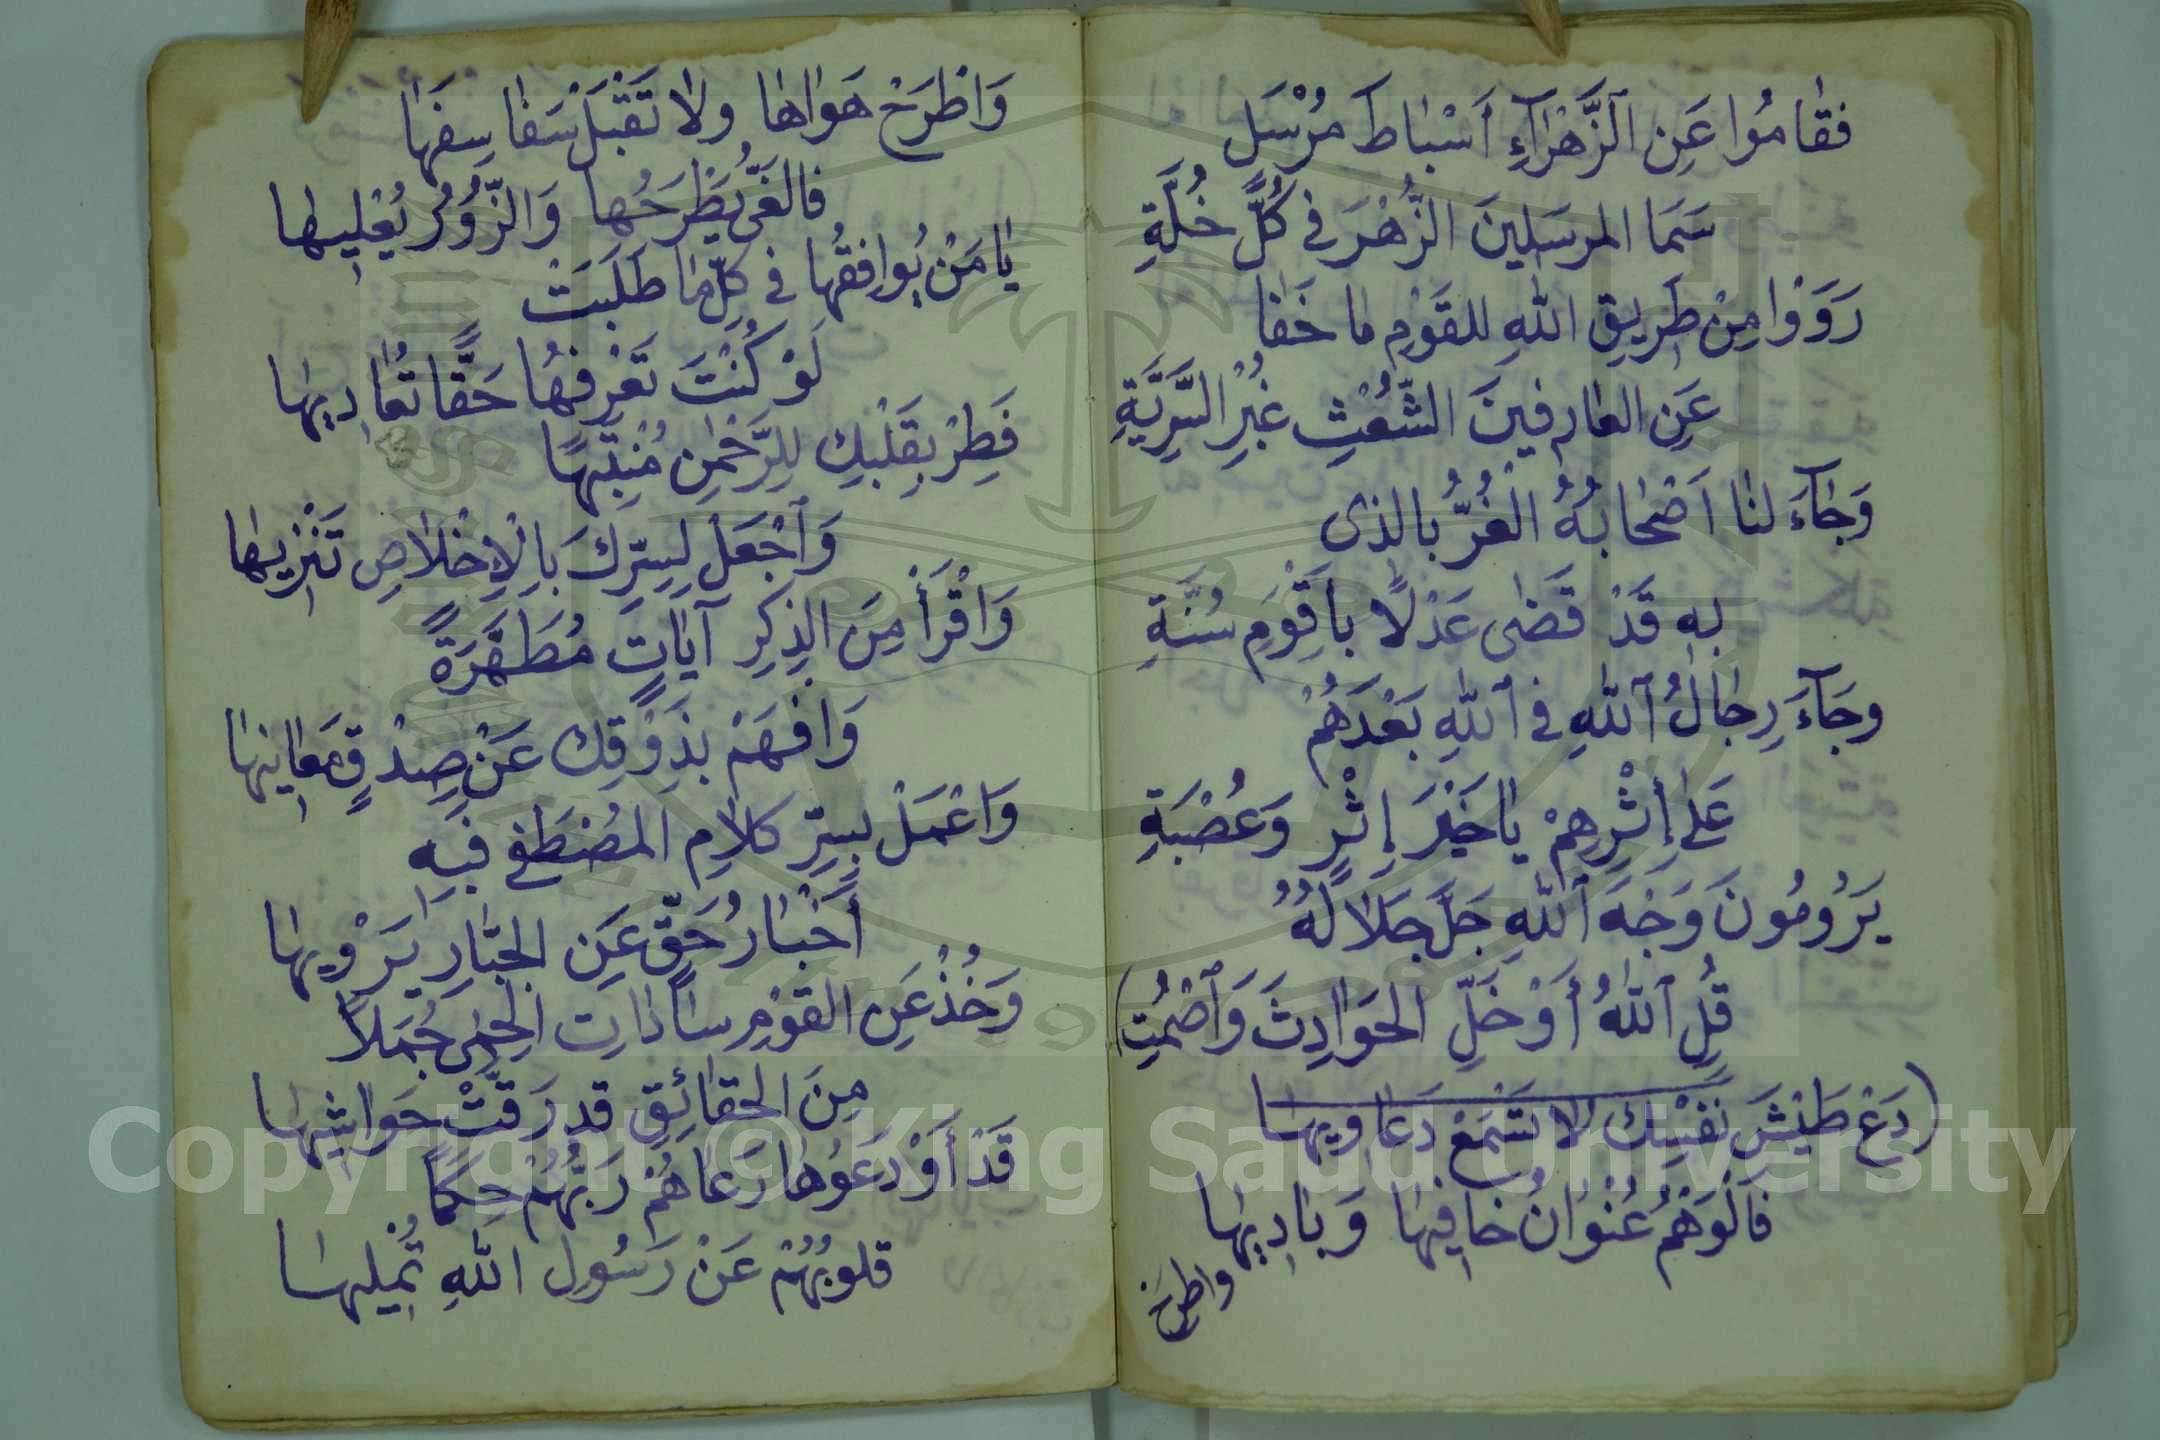 فقامُوا عَنِ ٱلزَّهْرآءِ اَسْباطَ مُرْسَلٍ
سَمَا المرسَلينَ الزُّهْرَ في كُلِّ خُلَّةِ
رَوَوْا مِنْ طَرِيقِ اللهِ للقَوْمِ ما خَفا
عَنِ العارفينَ الشُّعْثِ غُبْرِ السَّرِيَّةِ
وَجآءَ لنا اَصْحابُهُ الغُرُّ بالذى
بِهِ قَدْ قَضٰى عَدْلاً باَقْوَمِ سُنَّةِ
وجَآءَ رِجالُ ٱللهِ في ٱللهِ بَعْدَهُمْ
عَلى إِثْرِهِمْ يا خَيْرَ إِثْرٍ وَعُصْبَةِ
يَرُومُونَ وَجْهَ ٱللهِ جَلَّ جَلالُهُ
قُلِ ٱللهُ أَوْ خَلِّ الحَوَادِثَ وَٱصْمُتِ)
(دَعْ طَيْشَ نَفْسِكَ لا تَسْمَعْ دَعاوِيها
فَالوَهْمُ عُنْوانُ خافِيها وَبادِيها
واطرح
وَاطْرَحْ هَواها ولا تَقْبَلْ سَفاسِفَها
فالغَىُّ يَطْرَحُها وَالزُّورُ يُعْلِيها
يامَنْ يُوافِقُها في كلِّ ما طَلَبَتْ
لَوْ كُنْتَ تَعْرِفُها حَقًّا تُعاديها
فَطِرْ بِقَلْبِكَ لِلرَّحْمٰنِ مُنْتَبِهًا
وَٱجْعَلْ لِسِرِّكَ بِالْإِخْلاصِ تَنْزِيها
وَاقْرَأْ مِنَ الذِكِرِ آياتٍ مُطَهَّرَةً
وَافْهَمْ بذَوْقِك عَنْ صِدْقٍ مَعانِيها
وَاعْمَلْ بسِرِّ كلامِ المُصْطَفى فَبِهِ
أَخْبارُ حَقٍّ عَنِ الجبّارِ يَرْوِيها
وَخُذْ عَنِ القَوْمِ ساداتِ الحِمى جُمَلاً
مِنَ الحقائِقِ قد رَقَّتْ حَواشِيها
قَدْ أَوْدَعُوها رَعاهُمْ رَبُّهُمْ حِكَمًا
قلوبُهُمْ عَنْ رَسُولِ اللهِ تُمْلِيها
Copyright © King Saud University